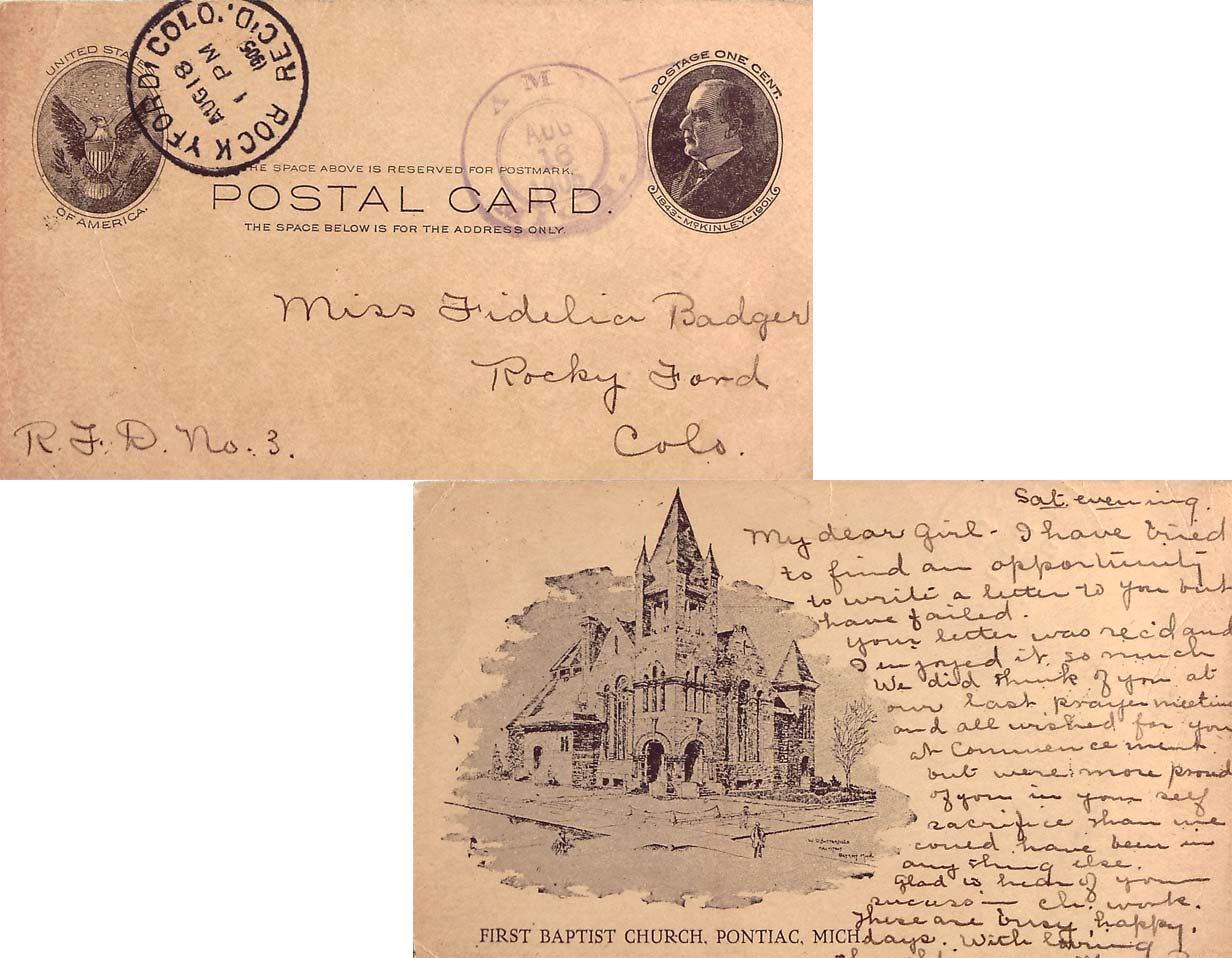 UNITED STA
OF AMERICA.
ROCKYFORD, COLO.
REC'D.
AUG 18
1 PM
1905
A M
AUG
16
POSTAGE ONE CENT.
1843-McKINLEY-1901
THE SPACE ABOVE IS RESERVED FOR POSTMARK.
POSTAL CARD.
THE SPACE BELOW IS FOR THE ADDRESS ONLY.
Miss Fidelia Badger
Rocky Ford
R.F.D. No. 3.
Colo.
Sat. evening.
My dear Girl - I have tried
to find an opportunity
to write a letter to you but
have failed.
Your letter was rec'd and
I enjoyed it so much
We did think of you at
our last prayer meetin
and all wished for you
at Commencement
but were more proud
of you in your self
sacrifice than we
could have been in
any thing else.
Glad to hear of your
success in ch. work.
These are busy happy
days. With loving
FIRST BAPTIST CHURCH, PONTIAC, MICH